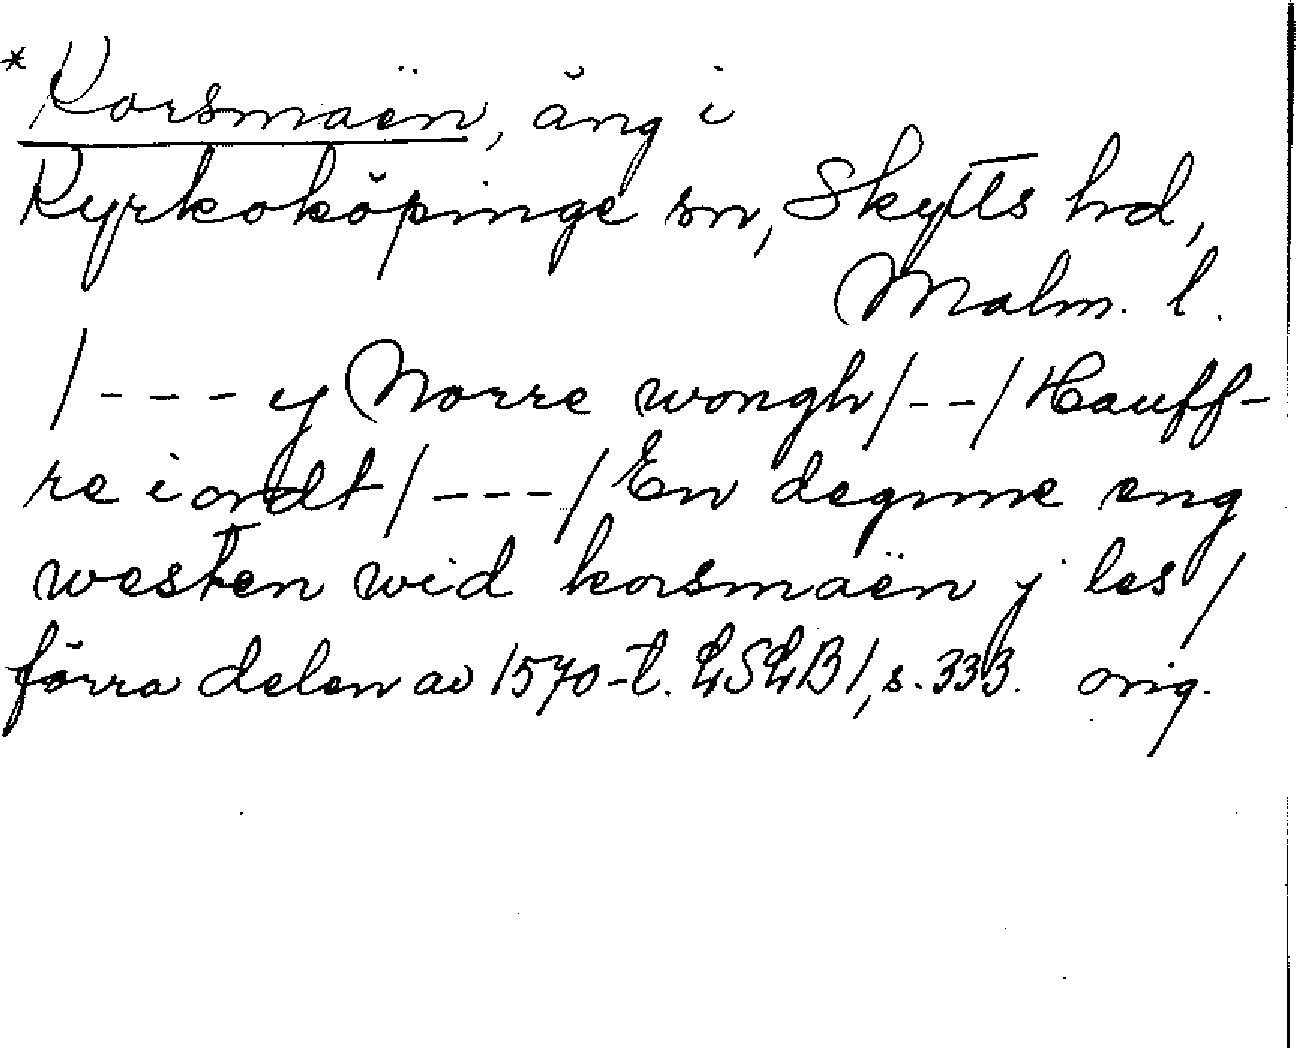 * Korsmaën, äng i
Kyrkoköpinge sn, Skytts hd,
Malm. l.
/--- y Norre wongh/--/Hauff-
re iordt/---/En degnne eng
westen wid korsmaën y les/
förra delen av 1570-t. LSLB 1, s. 333. orig.